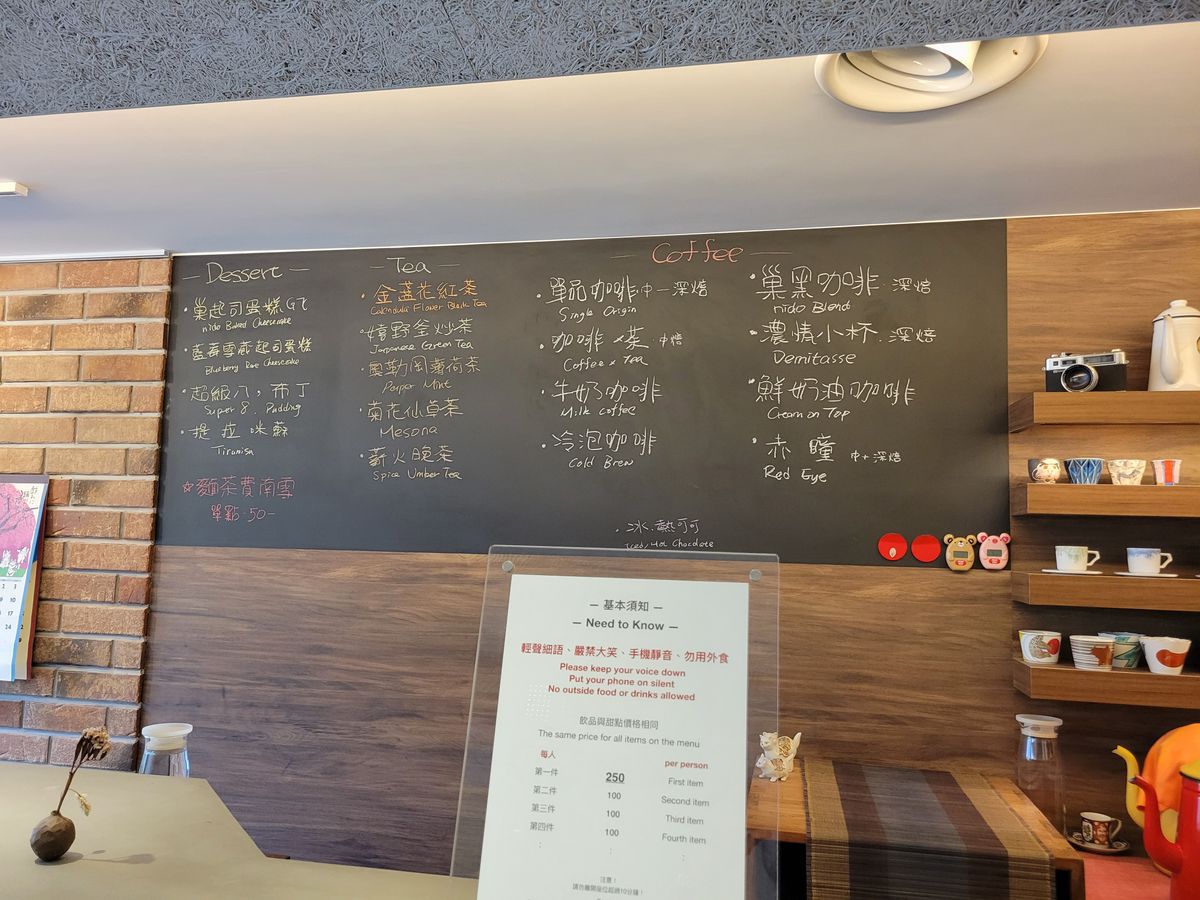 Dessert
巢起司蛋糕
nido Baked Cheesecake
藍莓雪藏起司蛋糕
Blueberry Rare Cheesecake
超級八，布丁
Super 8. Pudding
提拉咪蘇
☆麵茶費南雪
單點-50-
Tea
金盞花紅茶
Calendula Flower Black Tea
嬉野釜炒茶
Japanese Green Tea
奧勒岡薄荷茶
Peper Mint
菊花仙草茶
Mesona
薪火晚茶
Spice Umber Tea
Coffee
單品咖啡 中-深焙
Single Origin
咖啡×茶 中焙
Coffee x Tea
牛奶咖啡
Milk coffee
冷泡咖啡
Cold Brew
巢黑咖啡 深焙
nido Blend
濃情小杯 深焙
Demitasse
鮮奶油咖啡
Cream on Top
赤瞳 中+深焙
Red Eye
冰.熱可可
Iced/Hot Chocolate
— 基本須知 —
— Need to Know —
輕聲細語、嚴禁大笑、手機靜音、勿用外食
Please keep your voice down
Put your phone on silent
No outside food or drinks allowed
飲品與甜點價格相同
The same price for all items on the menu
每人 per person
第一件 250 First item
第二件 100 Second item
第三件 100 Third item
第四件 100 Fourth item
: : :
注意！
請勿離開座位超過10分鐘！